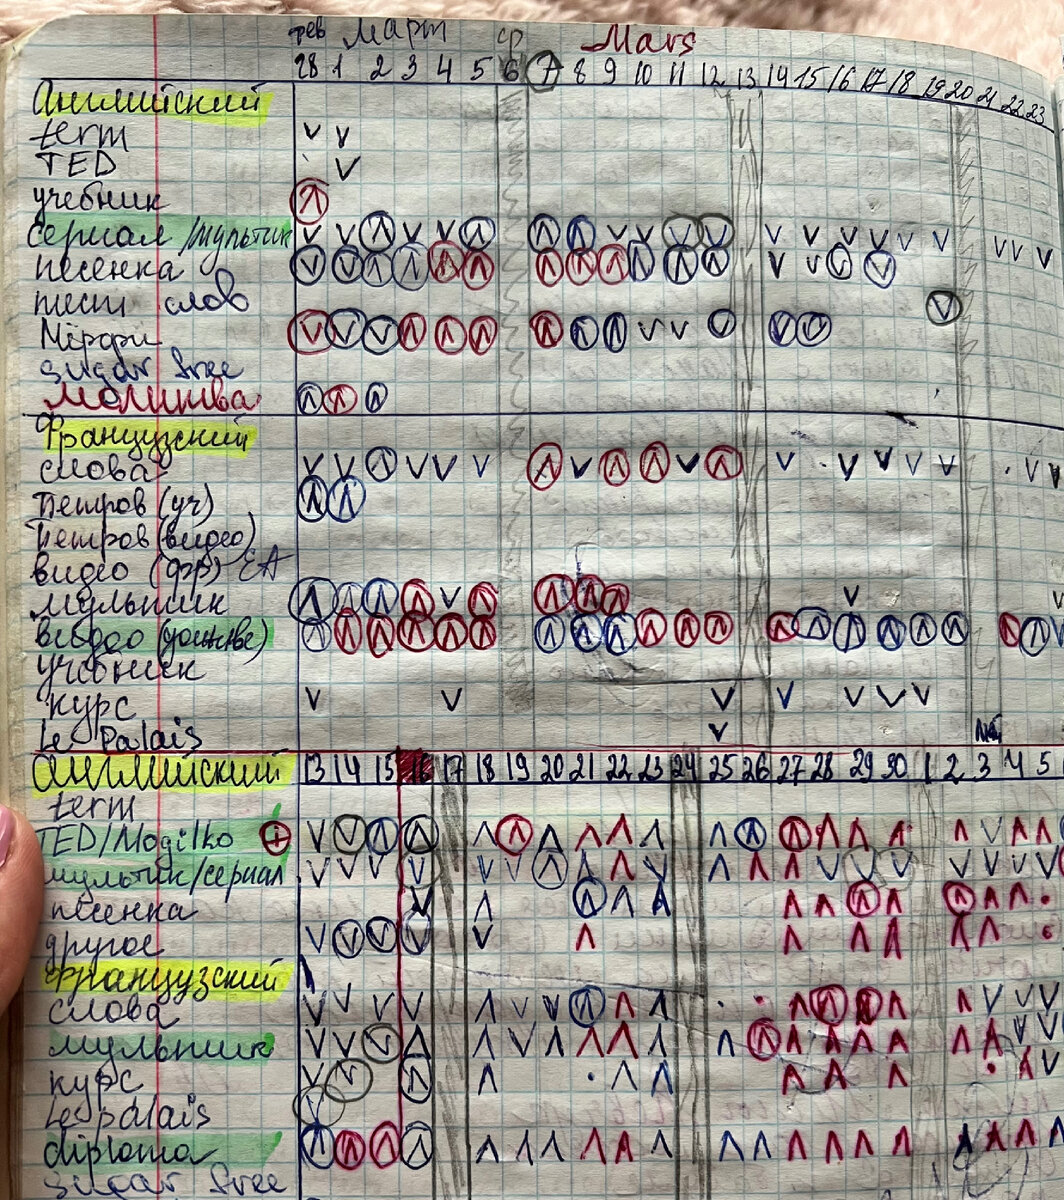 фев Март ср Mars
28 1 2 3 4 5 6 7 8 9 10 11 12 13 14 15 16 17 18 19 20 21 22 23
Английский
term
TED
учебник
сериал/мультик
песенка
тест слов
Мёрфи
sugar free
молитва
Французский
слова
Петров (уч)
Петров (видео)
видео (фр) ЕА
мультик
видео
учебник
курс
Le Palais
Английский 13 14 15 16 17 18 19 20 21 22 23 24 25 26 27 28 29 30 1 2 3 4 5
term
TED/Mogilko
мультик/сериал
песенка
другое
Французский
слова
мультик
курс
Le palais
diploma
sugar free